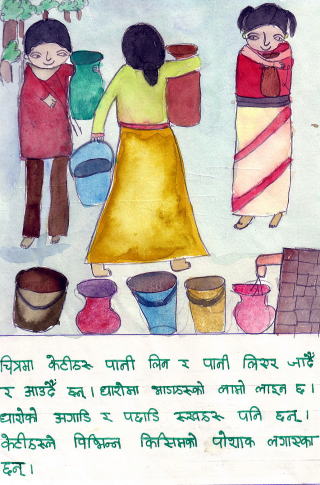 चित्रमा केटीहरू पानी लिन र पानी लिएर जाँदै
र आउदै छन्। धारोमा भाडाहरूको लामो लाइन छ।
धाराको अगाडि र पछाडि रूखहरू पनि छन्।
केटीहरूले विभिन्न किसिमको पोषाक लगाएका
छन्।